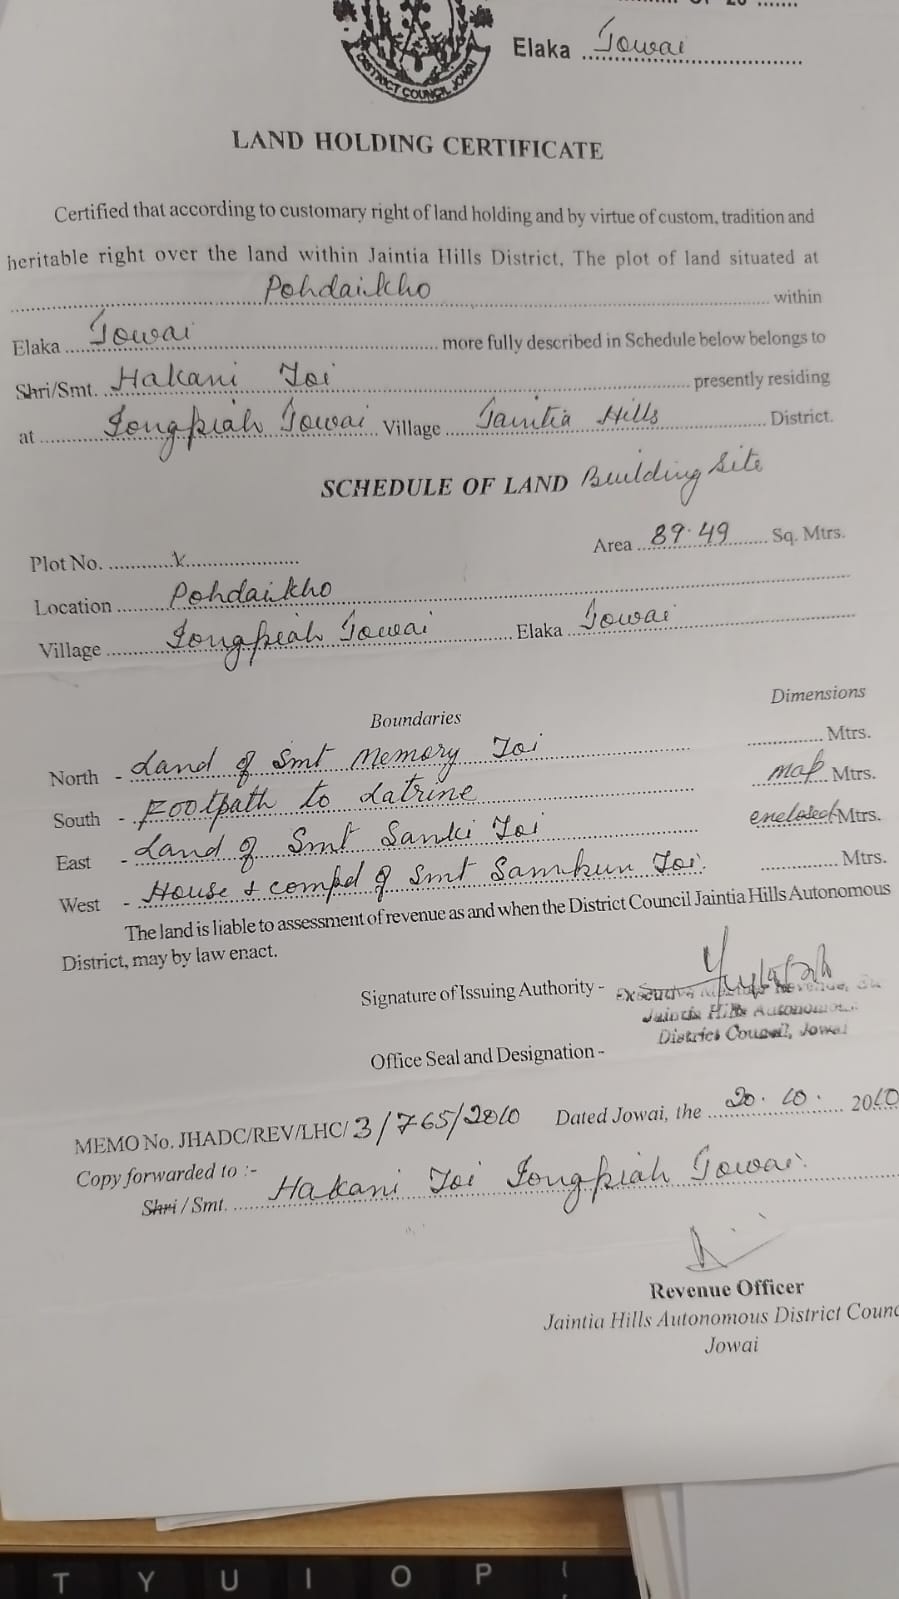 Elaka Jowai
DISTRICT COUNCIL JOWAI
LAND HOLDING CERTIFICATE
Certified that according to customary right of land holding and by virtue of custom, tradition and
heritable right over the land within Jaintia Hills District, The plot of land situated at
Pohdaikho within
Elaka Jowai more fully described in Schedule below belongs to
Shri/Smt. Hakani Toi presently residing
at Iongpiah Jowai Village Jaintia Hills District.
SCHEDULE OF LAND Building Site
Plot No.
Area 89.49 Sq. Mtrs.
Location Pohdaikho
Village Iongpiah Jowai Elaka Jowai
Boundaries Dimensions
North - Land of Smt Memory Toi Mtrs.
South - Footpath to Latrine map Mtrs.
East - Land of Smt Sanki Toi enclosed Mtrs.
West - House & compd of Smt Toi. Mtrs.
The land is liable to assessment of revenue as and when the District Council Jaintia Hills Autonomous
District, may by law enact.
Signature of Issuing Authority - Executive Revenue,
Jaintia Hills Autonomous
District Council, Jowai
Office Seal and Designation -
MEMO No. JHADC/REV/LHC/ 3/765/2010 Dated Jowai, the 20.10. 2010
Copy forwarded to :-
Shri / Smt. Hakani Toi Iongpiah Jowai.
Revenue Officer
Jaintia Hills Autonomous District Counc
Jowai
T Y U I O P